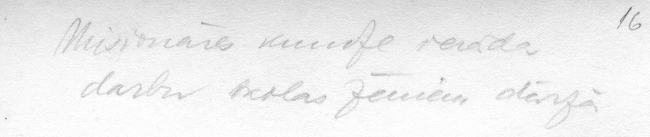 16
Misionāres kundze ierāda
darbu skolas zēniem dārzā